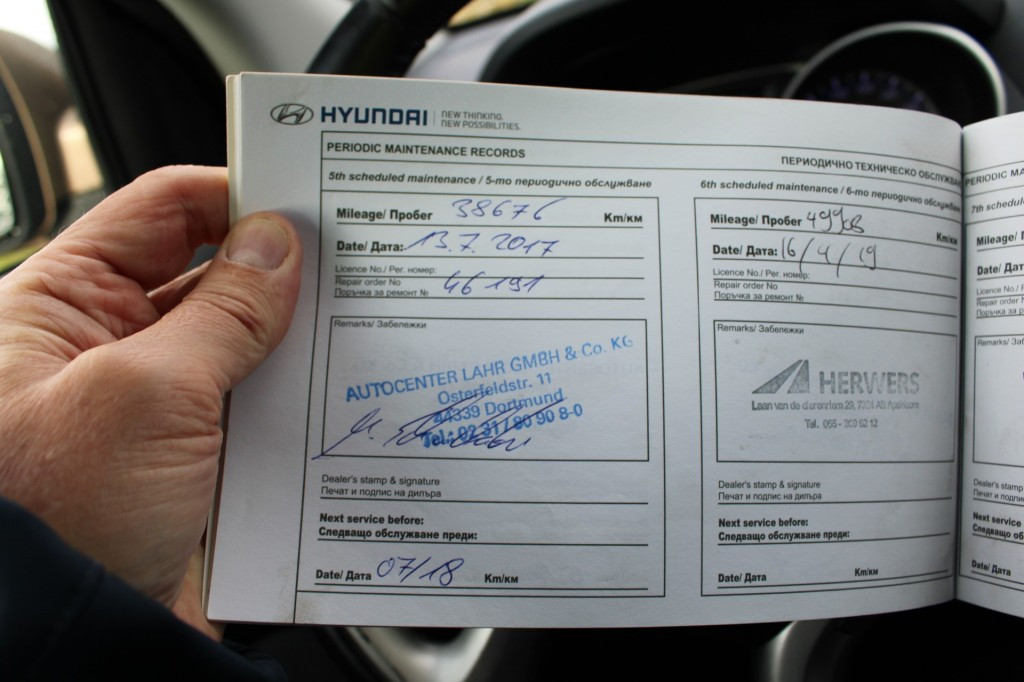 HYUNDAI | NEW THINKING.
NEW POSSIBILITIES.
PERIODIC MAINTENANCE RECORDS
ПЕРИОДИЧНО ТЕХНИЧЕСКО ОБСЛУЖВАН
5th scheduled maintenance / 5-то периодично обслужване
Mileage/ Пробег 38676 Km/км
Date/ Дата: 13.7.2017
Licence No./ Рег. номер:
Repair order No 46191
Поръчка за ремонт №
Remarks/ Забележки
AUTOCENTER LAHR GMBH & Co. KG
Osterfeldstr. 11
44339 Dortmund
Tel.: 02 31 / 80 90 8-0
Dealer's stamp & signature
Печат и подпис на дилъра
Next service before:
Следващо обслужване преди:
Date/ Дата 07/18 Km/км
6th scheduled maintenance / 6-то периодично обслужване
Mileage/ Пробег Km/км
Date/ Дата: 16/4/19
Licence No./ Рег. номер:
Repair order No
Поръчка за ремонт №
Remarks/ Забележки
HERWERS
Laan van de 29, 7324 Apeldoorn
Tel. 055 -
Dealer's stamp & signature
Печат и подпис на дилъра
Next service before:
Следващо обслужване преди:
Date/ Дата Km/км
PERIODIC MA
7th schedul
Mileage/ П
Date/ Дат
Licence No./ Р
Repair order
Поръчка за р
Remarks/ Заб
Dealer's stamp
Печат и подп
Next service
Следващо об
Date/ Дата